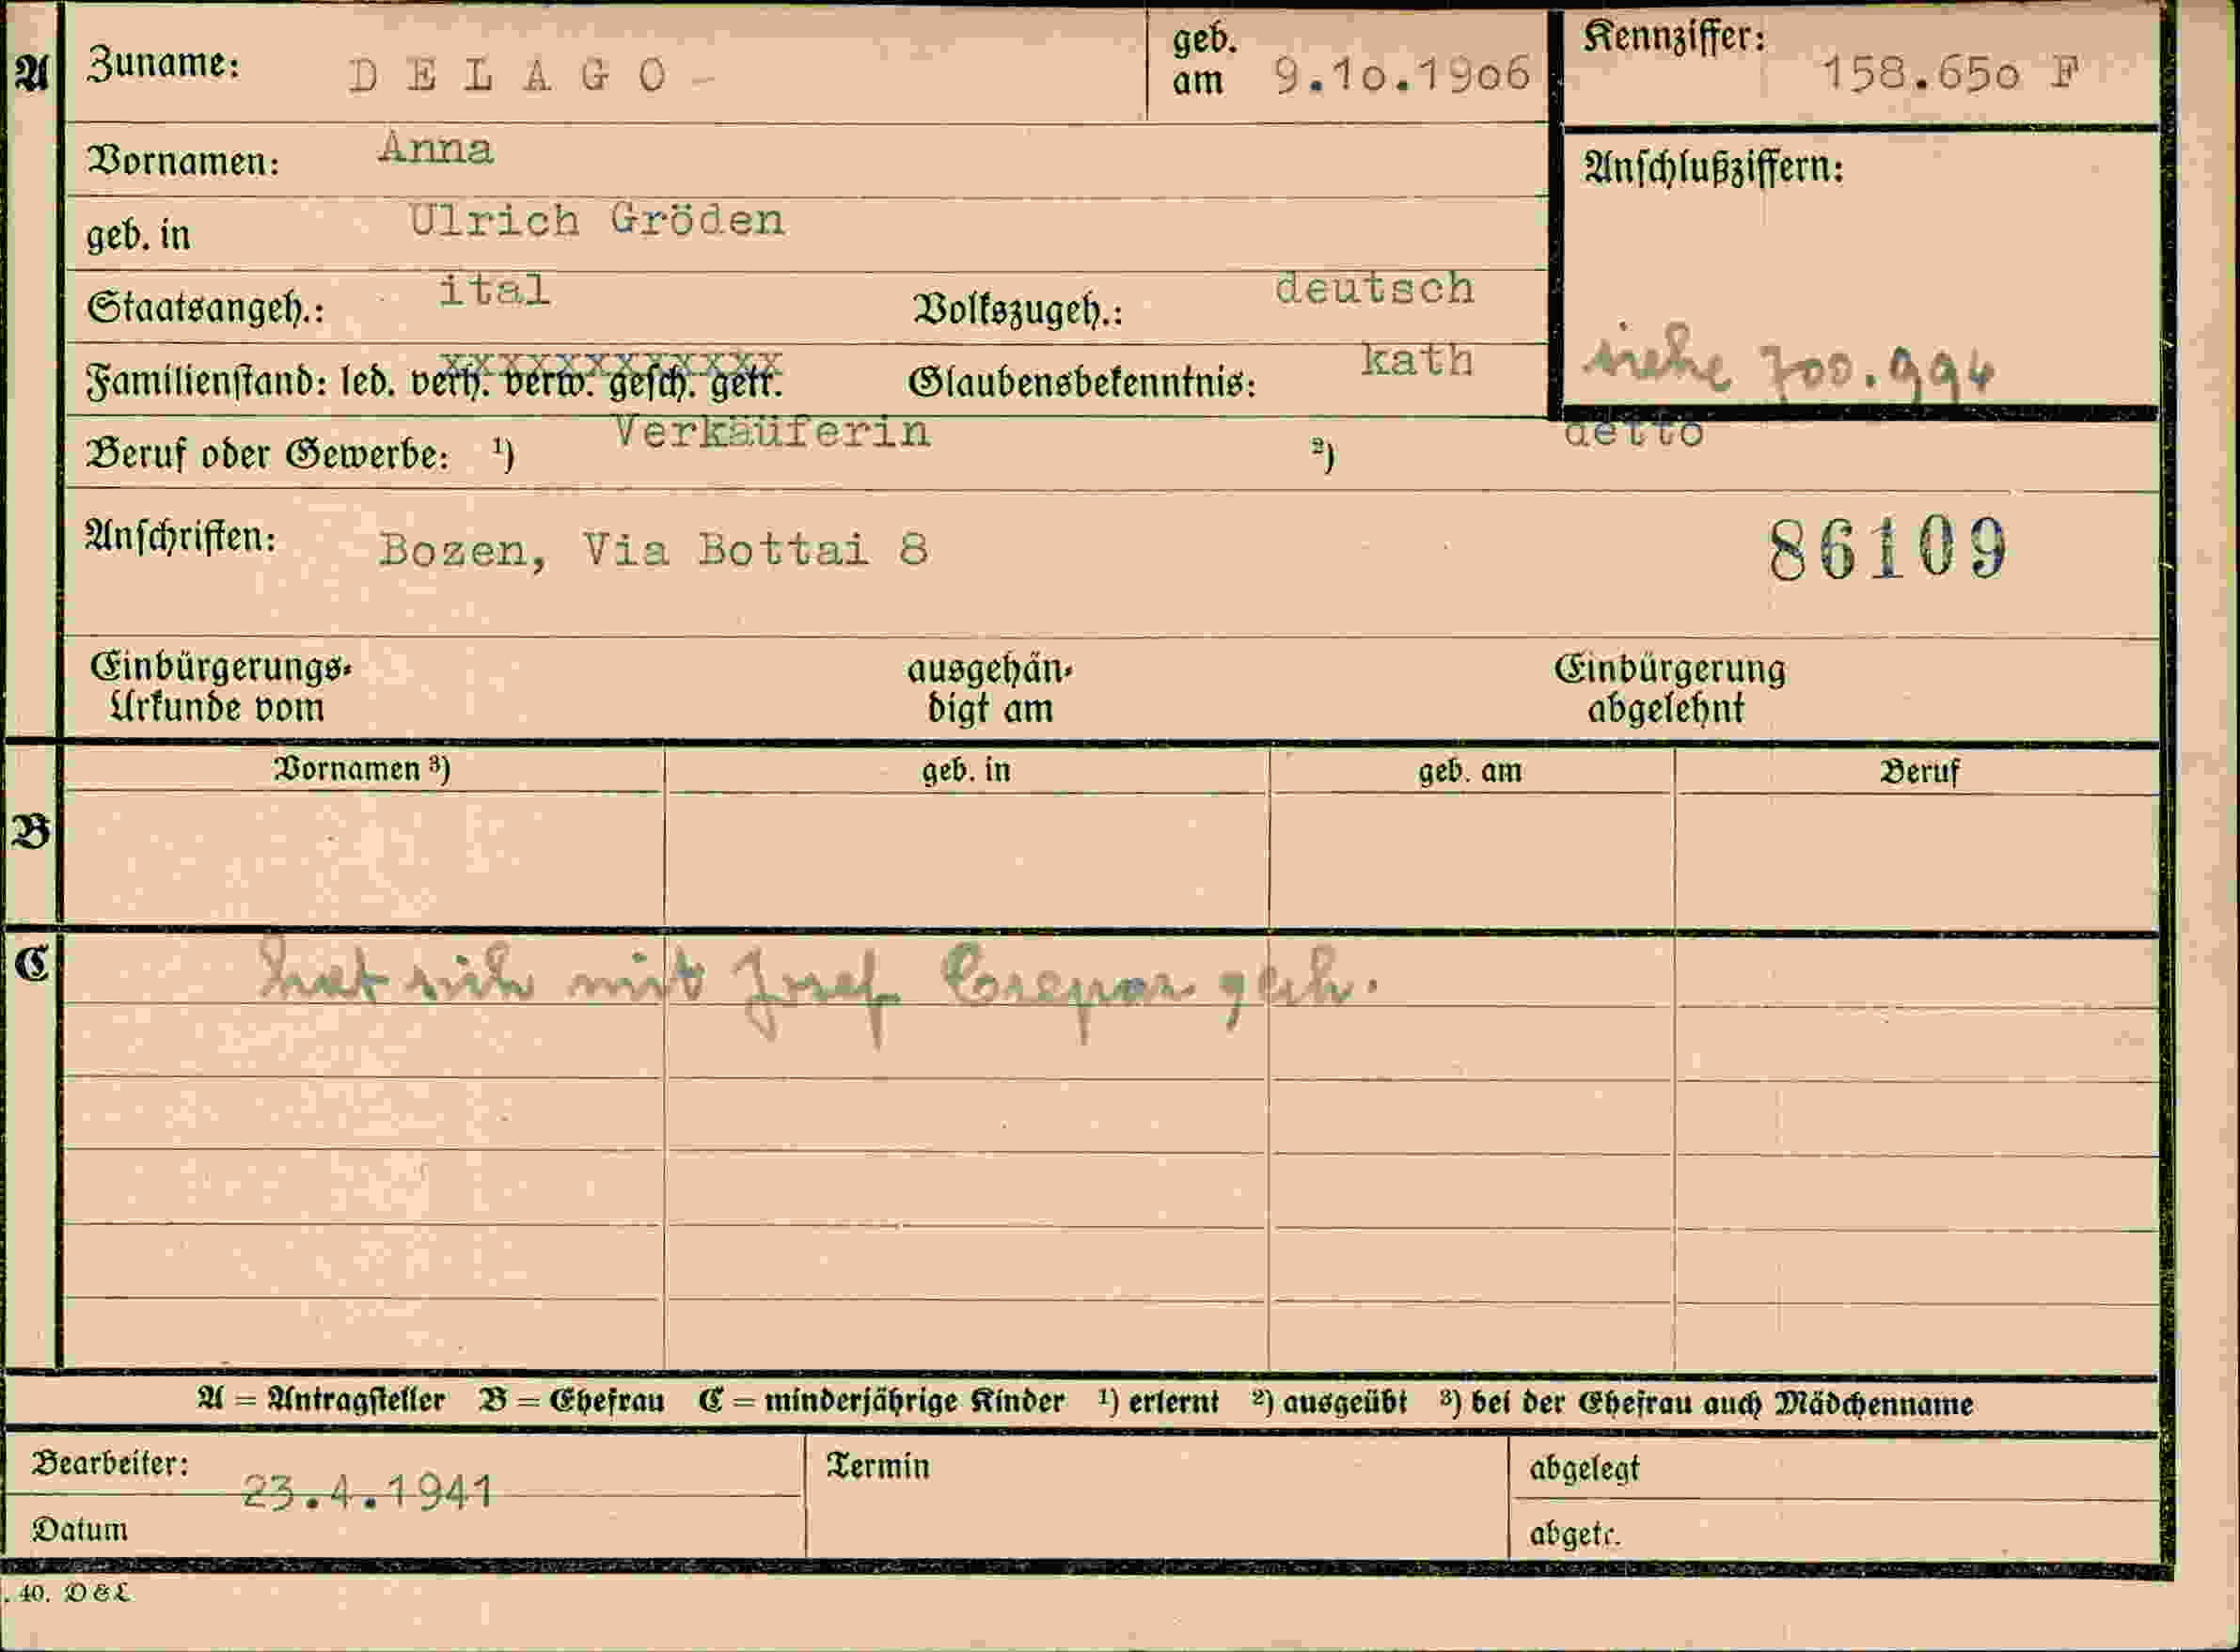 A
Zuname: DELAGO -
geb. am 9.10.1906
Kennziffer: 158.650 F
Vornamen: Anna
Anschlußziffern:
geb. in Ulrich Gröden
Staatsangeh.: ital Volkszugeh.: deutsch
siehe 700.994
Familienstand: led. verh. verw. gesch. getr. Glaubensbekenntnis: kath
xxxxxxxxxxxx
Beruf oder Gewerbe: ¹) Verkäuferin ²) detto
Anschriften: Bozen, Via Bottai 8
86109
Einbürgerungs-
Urkunde vom
ausgehän-
digt am
Einbürgerung
abgelehnt
B
Vornamen ³) geb. in geb. am Beruf
C
hat sich mit Josef
A = Antragsteller B = Ehefrau C = minderjährige Kinder ¹) erlernt ²) ausgeübt ³) bei der Ehefrau auch Mädchenname
Bearbeiter:
23.4.1941
Datum
Termin
abgelegt
abgetr.
. 40. D & L